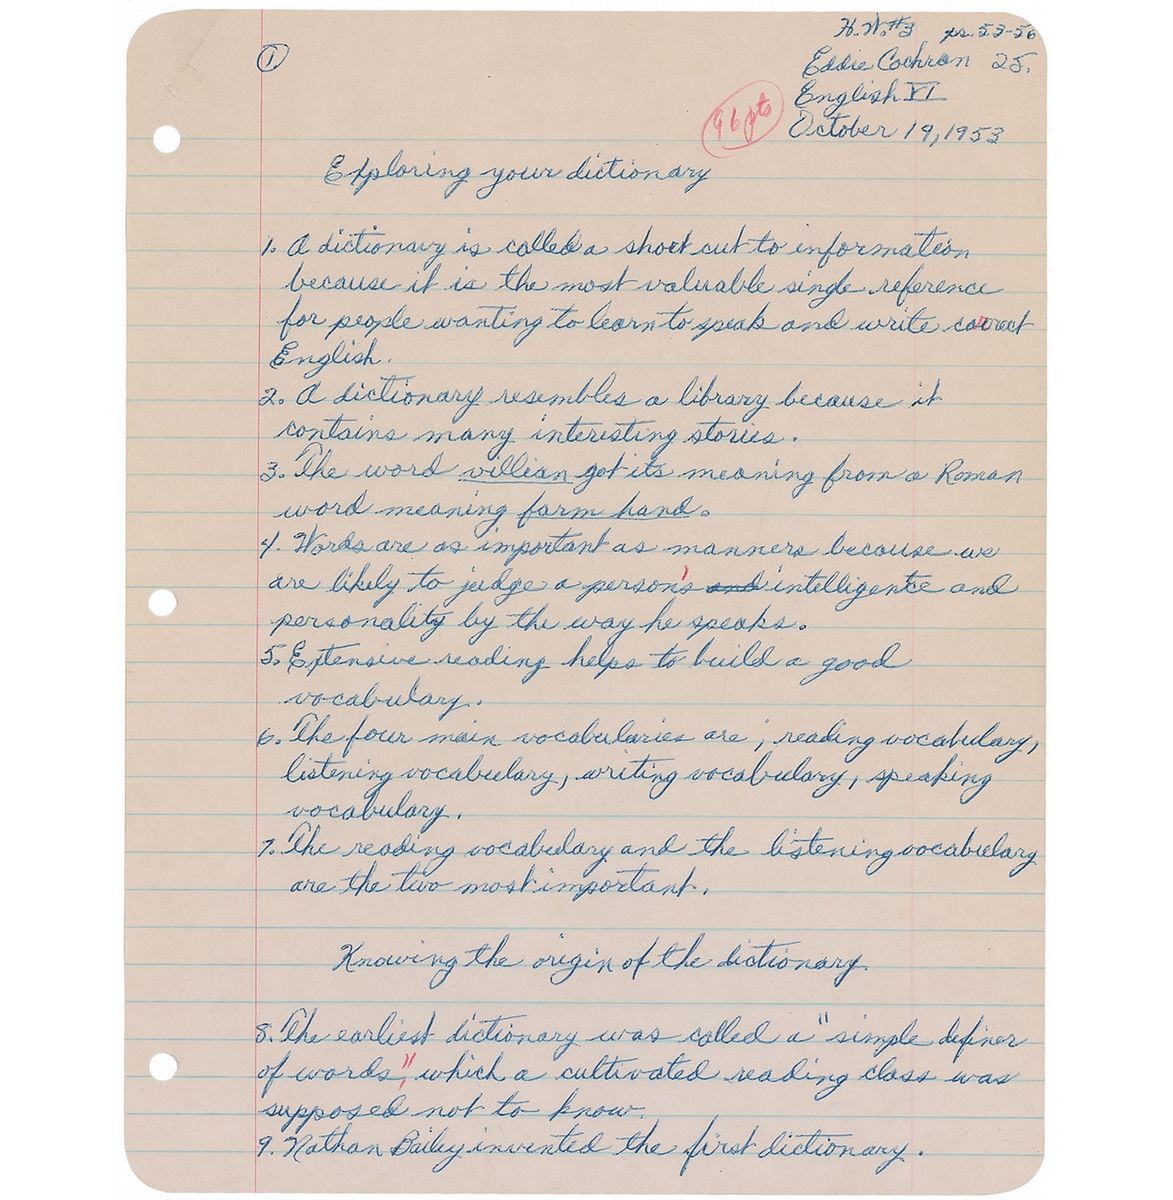 H.W.#3 ps. 53-56
① Eddie Cochran 25.
English VI
96 pts
October 19, 1953
Exploring your dictionary
1. A dictionary is called a short cut to information
because it is the most valuable single reference
for people wanting to learn to speak and write correct
English.
2. A dictionary resembles a library because it
contains many interesting stories.
3. The word villian got its meaning from a Roman
word meaning farm hand.
4. Words are as important as manners because we
are likely to judge a person's and intelligence and
personality by the way he speaks.
5. Extensive reading helps to build a good
vocabulary.
6. The four main vocabularies are; reading vocabulary,
listening vocabulary, writing vocabulary, speaking
vocabulary.
7. The reading vocabulary and the listening vocabulary
are the two most important.
Knowing the origin of the dictionary.
8. The earliest dictionary was called a "simple definer
of words", which a cultivated reading class was
supposed not to know.
9. Nathan Bailey invented the first dictionary.